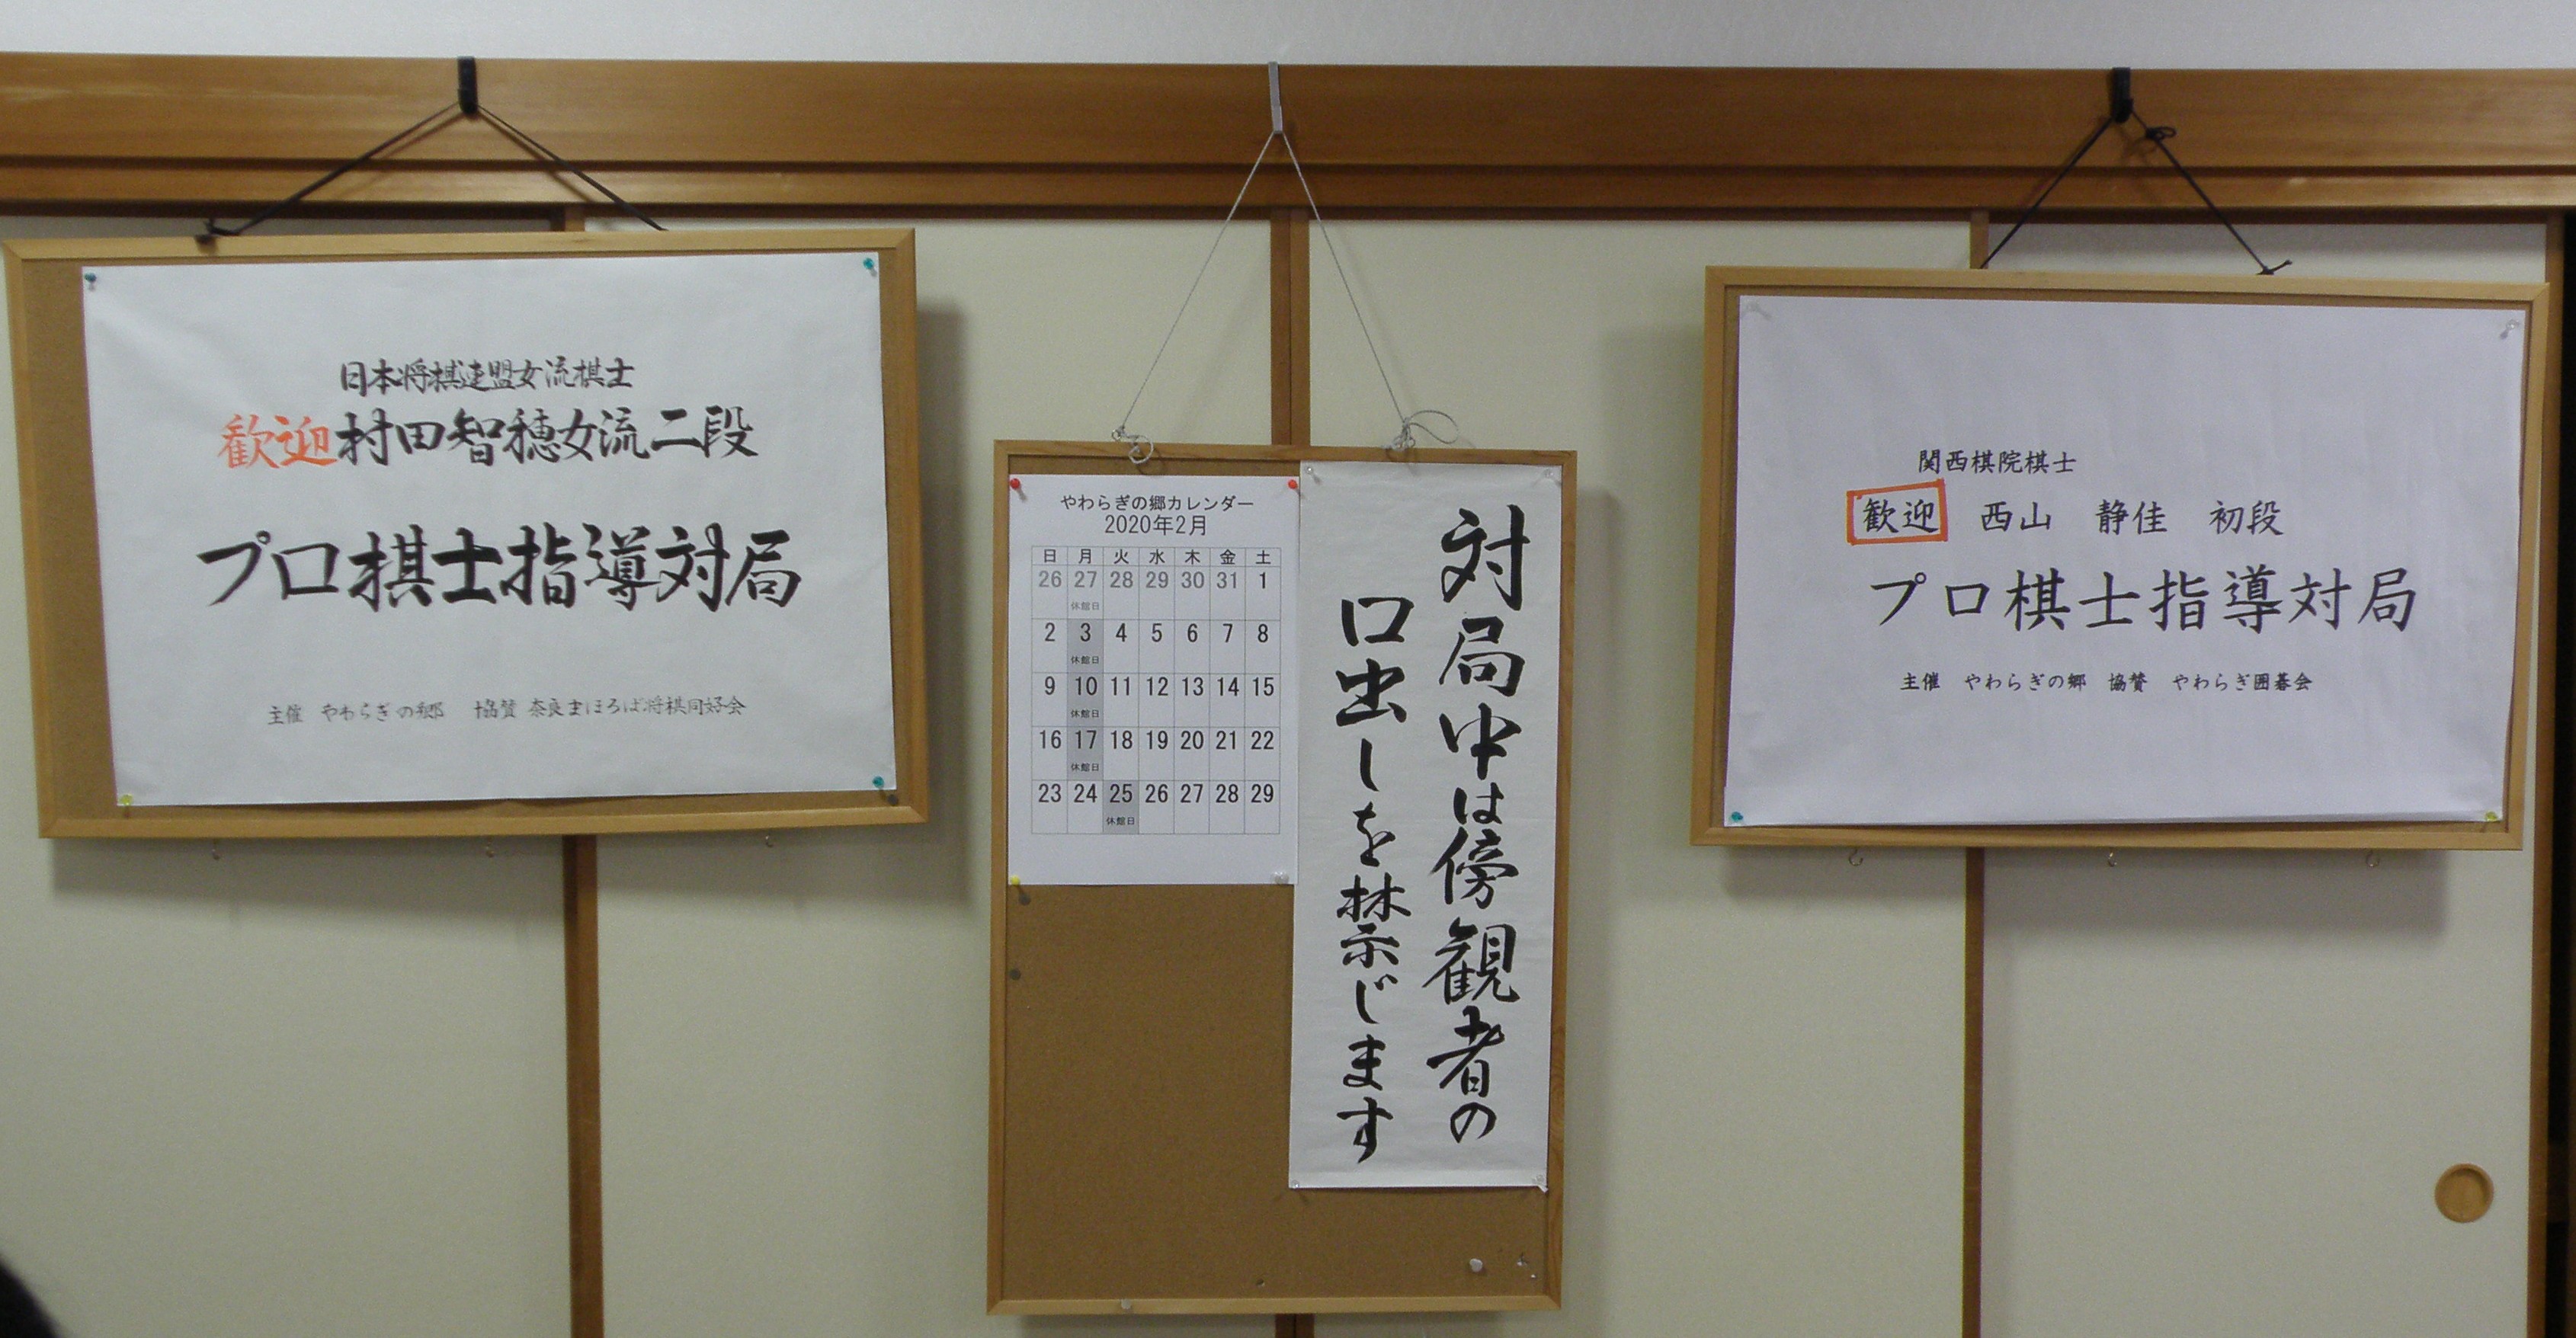 日本将棋連盟女流棋士
歓迎村田智穂女流二段
プロ棋士指導対局
主催 やわらぎの郷 協賛 奈良まほろば将棋同好会
やわらぎの郷カレンダー
2020年2月
日 月 火 水 木 金 土
26 27 28 29 30 31 1
休館日
2 3 4 5 6 7 8
休館日
9 10 11 12 13 14 15
休館日
16 17 18 19 20 21 22
休館日
23 24 25 26 27 28 29
休館日
対局中は傍観者の
口出しを禁じます
関西棋院棋士
歓迎 西山 静佳 初段
プロ棋士指導対局
主催 やわらぎの郷 協賛 やわらぎ囲碁会